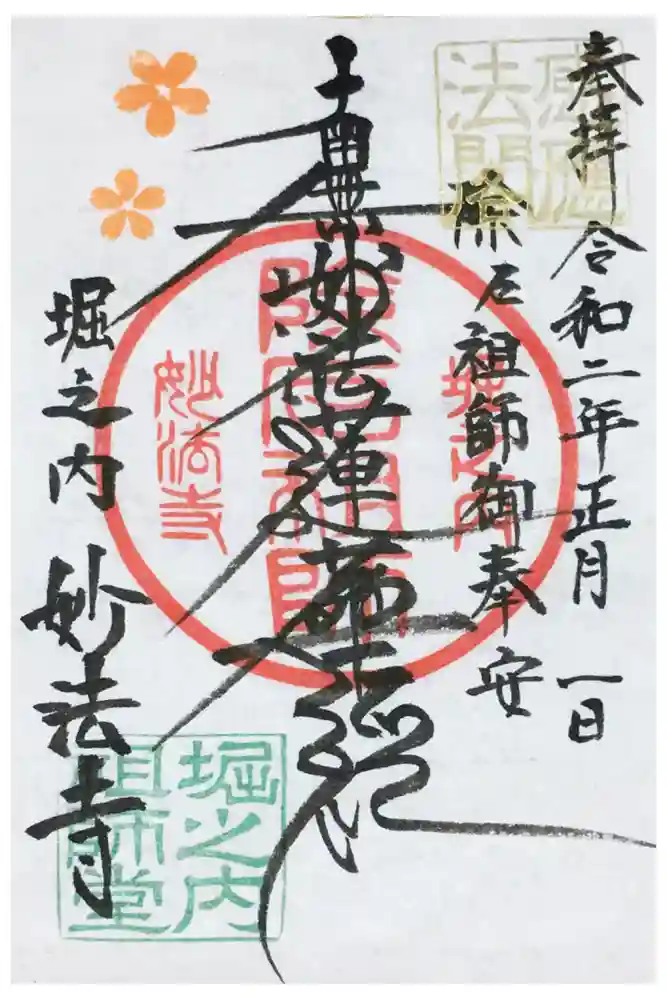 奉拝 令和二年正月一日
除厄祖師御奉安
南無妙法蓮華経
堀之内 妙法寺
法門
堀之内
除厄祖師
妙法寺
堀之内
祖師堂